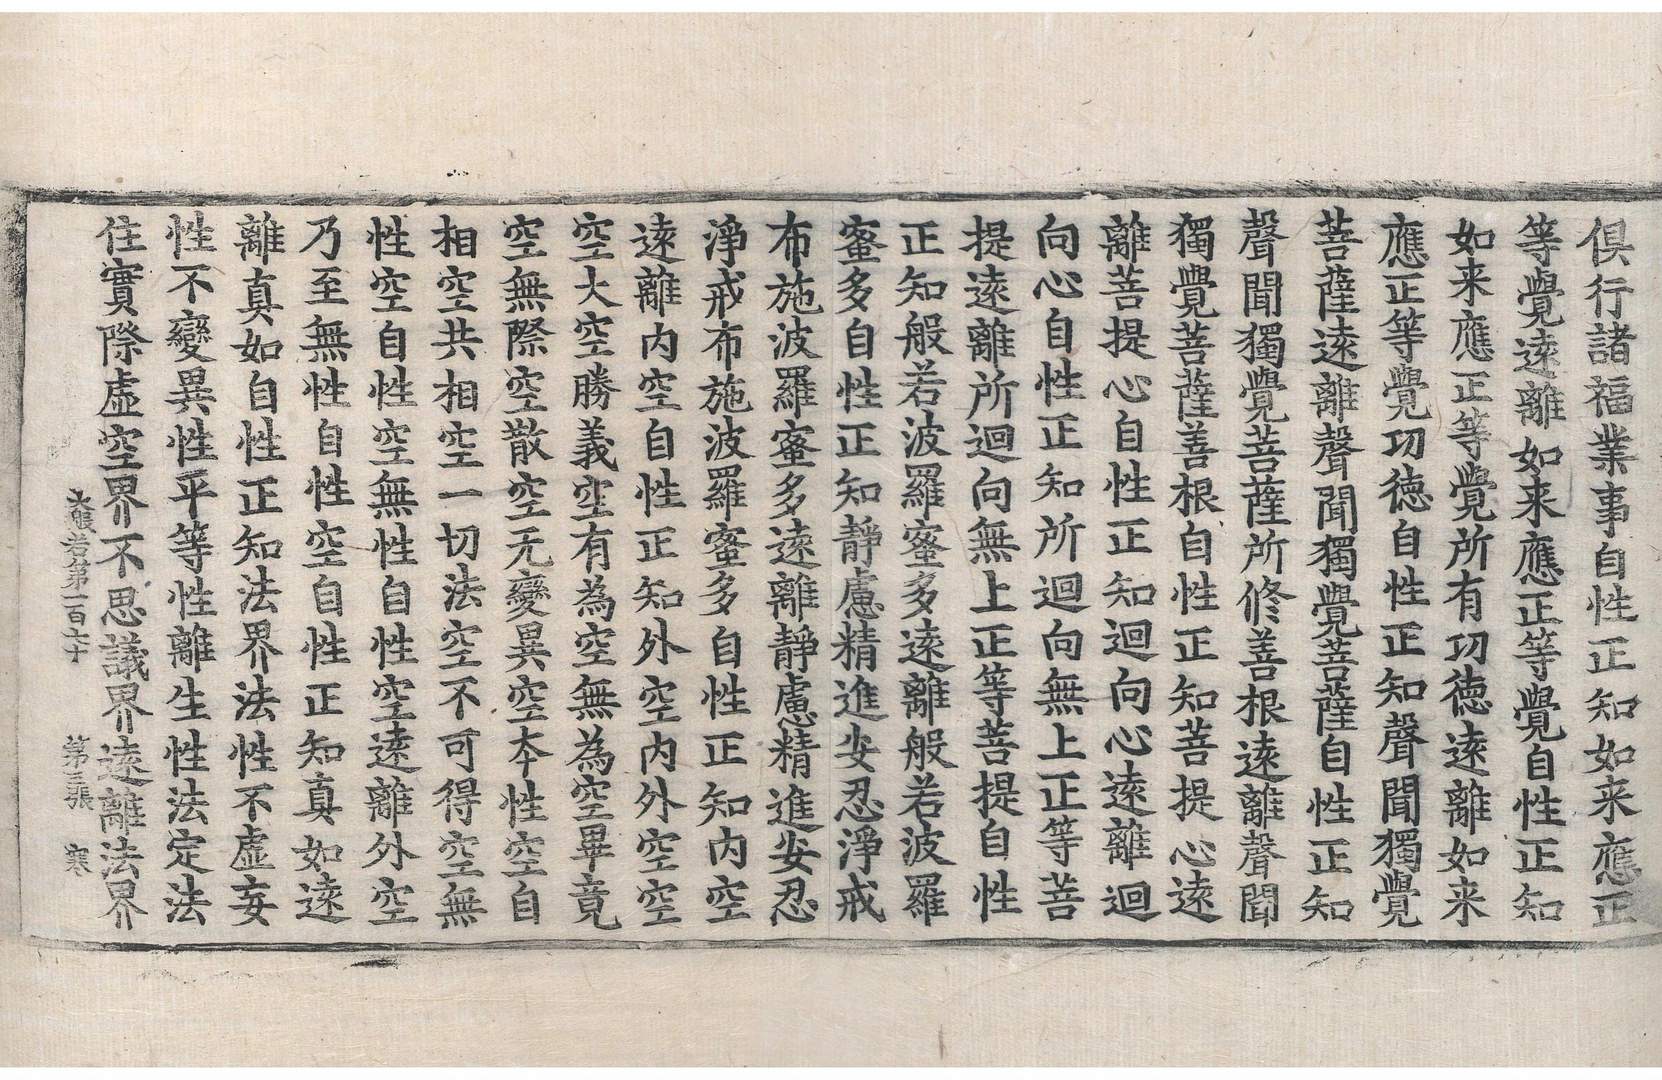 俱行諸福業事自性正知如来應正
等覺遠離如来應正等覺自性正知
如来應正等覺所有功德遠離如来
應正等覺功德自性正知聲聞獨覺
菩薩遠離聲聞獨覺菩薩自性正知
聲聞獨覺菩薩所修善根遠離聲聞
獨覺菩薩善根自性正知菩提心遠
離菩提心自性正知迴向心遠離迴
向心自性正知所迴向無上正等菩
提遠離所迴向無上正等菩提自性
正知般若波羅蜜多遠離般若波羅
蜜多自性正知靜慮精進安忍淨戒
布施波羅蜜多遠離靜慮精進安忍
淨戒布施波羅蜜多自性正知内空
遠離内空自性正知外空内外空空
空大空勝義空有為空無為空畢竟
空無際空散空无變異空本性空自
相空共相空一切法空不可得空無
性空自性空無性自性空遠離外空
乃至無性自性空自性正知真如遠
離真如自性正知法界法性不虛妄
性不變異性平等性離生性法定法
住實際虛空界不思議界遠離法界
大般若第一百六十 第三張 寒